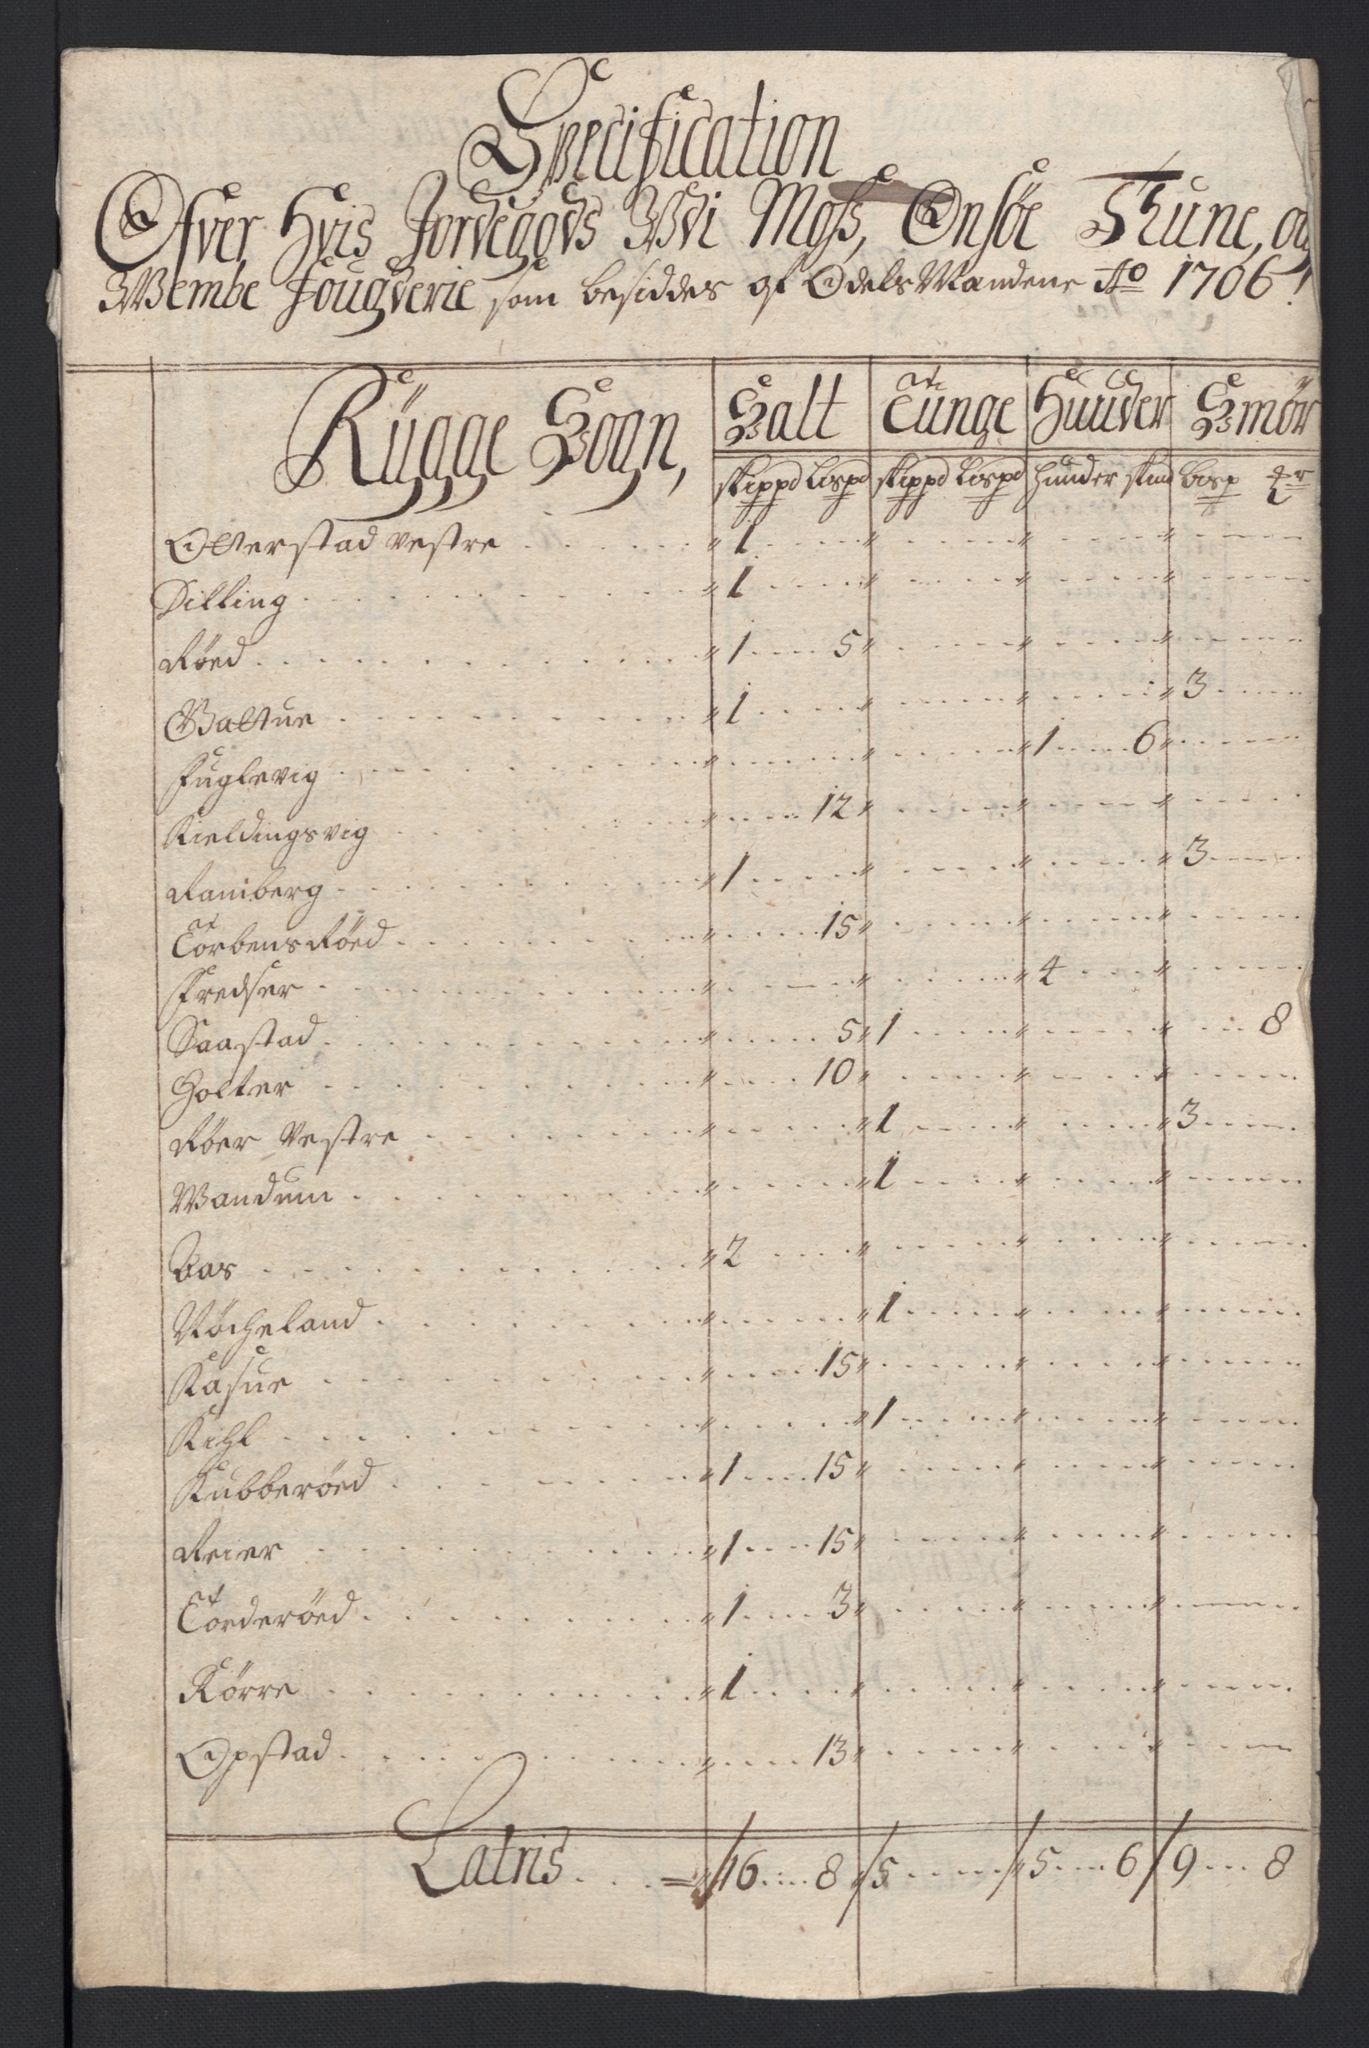 Specification
Ofver, Hvis Jordegods Udi Moss, Onsöe Thune, og
Wembe Fougderie som besiddes af OdelsMandene Ao 1706!
Rügge Sogn, Salt Tunge Huuder Smör
skippd Lispd skippd Lispd Huuder skind Lisp
Otterstad vestre 1
Dilling 1
Röed 1 5
Waltue 1 3
Fuglevig 1 6
Kieldingsvig 12
Ramberg 1 3
TorbensRöed 15
Fredser 4
Saastad 5 1 8
Holter 10
Röer Vestre 1 3
Wandum 1
Bas 2
Röcheland 1
Kasue 15
Kihl 1
Kubberöed 1 15
Reier 1 15
Torderöed 1 3
Rörre 1
Opstad 13
Latris 16 8 5 5 6 9 8